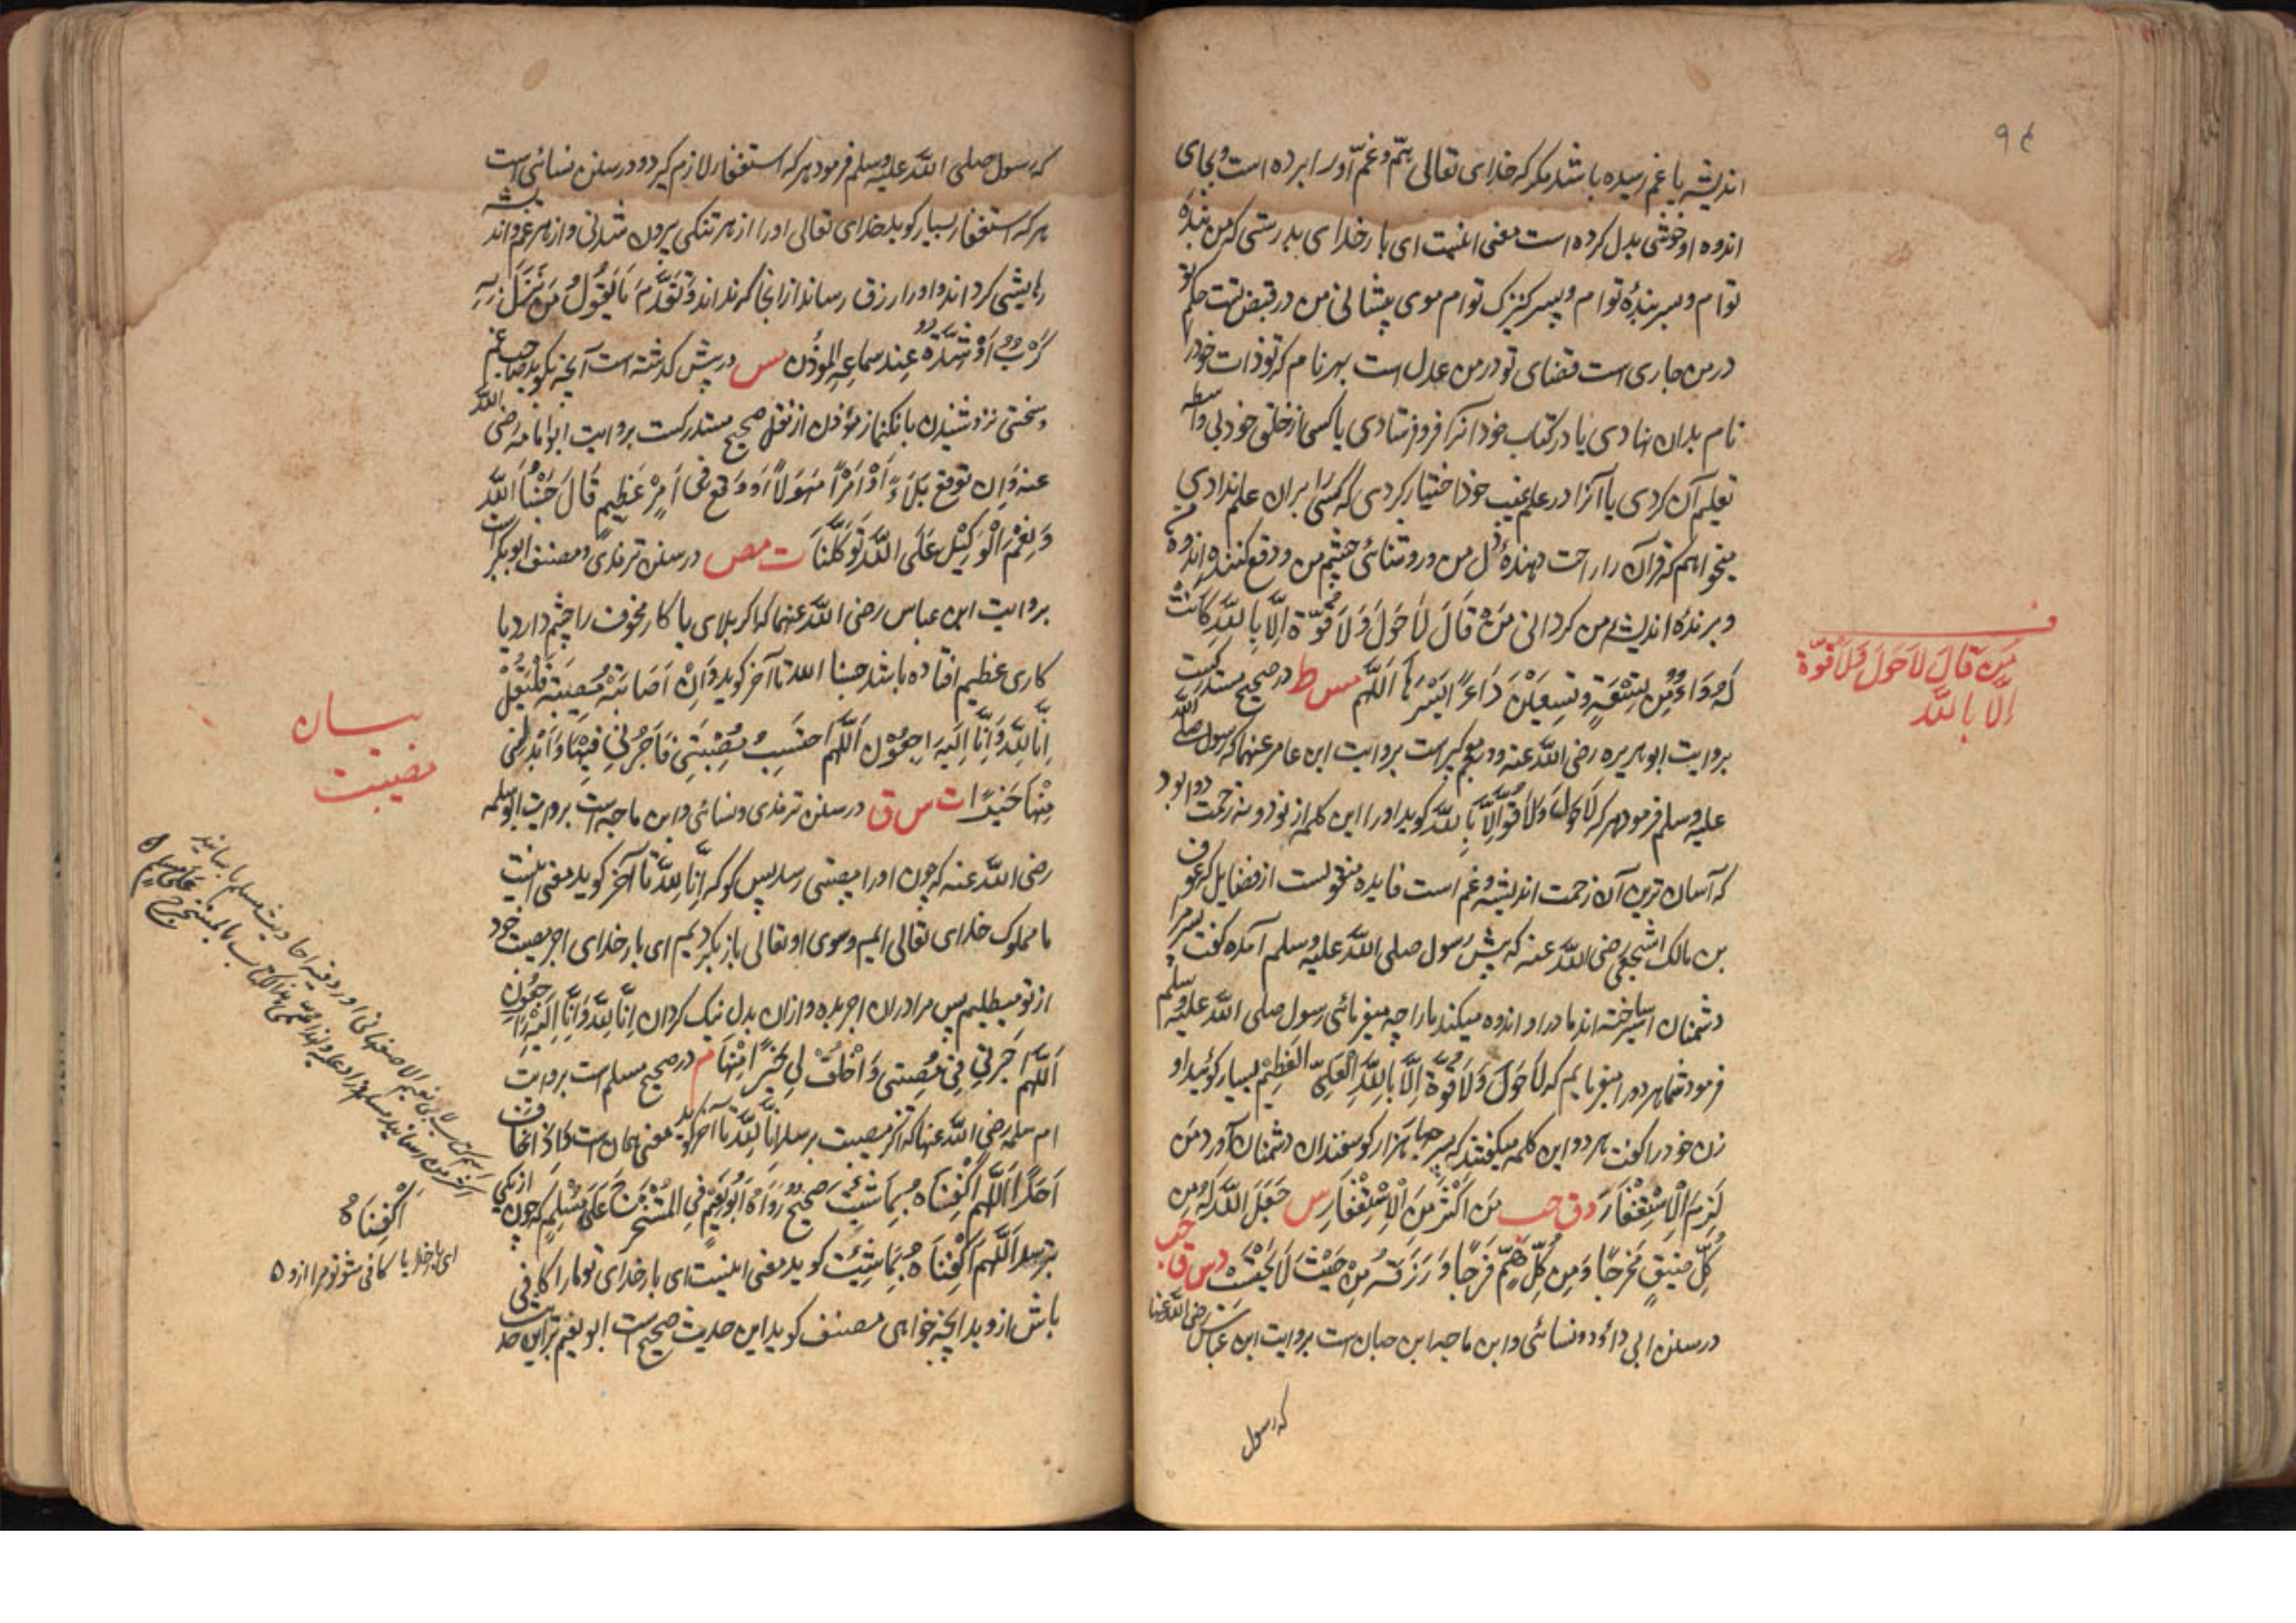 ٩٤
اندیشه یا غم رسیده باشد مکر که خدای تعالی همّ و غمّ او را برده است و بجای
اندوه او خوشی بدل کرده است معنی اینست ای بار خدای بدرستی که من بنده
توام و پسر بندهٔ توام و پسر کنیزک توام موی پیشانی من در قبض تست حکم تو
در من جاری است قضای تو در من عدل است بهر نام که تو ذات خود را
نام بدان نهادی یا در کتاب خود آنرا فرو فرستادی یا کسی از خلق خود بی واسطه
تعلیم آن کردی یا آنرا در علم غیب خود اختیار کردی که کسی را بران علم ندادی
میخواهم که قرآن را راحت دهندهٔ دل من و روشنائی چشم من و دفع کننده اندوه من
و برندهٔ اندیشه من کردانی مَنْ قَالَ لَا حَوْلَ وَلَا قُوَّةَ اِلَّا بِاللّٰهِ كَانَتْ
لَهُ دَوَاءً مِنْ تِسْعَةٍ وَتِسْعِيْنَ دَاءً اَيْسَرُهَا اَللَّهَمُّ مس ط در صحیح مستدرکست
بروایت ابو هریره رضی اللّٰه عنه و در معجم کبیر است بروایت ابن عامر عنهما که رسول صلی اللّٰه
علیه و سلم فرمود هر که لَا حَوْلَ وَلَا قُوَّةَ اِلَّا بِاللّٰهِ کوید او را این کلمه از نود و نه زحمت دوا بود
که آسان ترین آن زحمت اندیشه و غم است فایده منقولست از فضایل که عوف
بن مالک اشجعی رضی اللّٰه عنه که پیش رسول صلی اللّٰه علیه و سلم آمده کفت پسر مرا
دشمنان اسیر ساخته اند مادر او اندوه میکند ما را چه میفرمائی رسول صلی اللّٰه علیه و سلم
فرمود شما هر دو را میفرمایم که لَا حَوْلَ وَلَا قُوَّةَ اِلَّا بِاللّٰهِ الْعَلِيِّ الْعَظِيْمِ بسیار کوئید او
زن خود را کفت هر دو این کلمه میکفتند که پسر صبا هزار کوسفندان دشمنان آورد مَنْ
لَزِمَ الْاِسْتِغْفَارَ د ق حب مَنْ اَكْثَرَ مِنَ الْاِسْتِغْفَارِ س جَعَلَ اللّٰهُ لَهُ مِنْ
كُلِّ ضِيْقٍ مَخْرَجًا وَمِنْ كُلِّ هَمٍّ فَرَجًا وَرَزَقَهُ مِنْ حَيْثُ لَا يَحْتَسِبُ د س ق حب
در سنن ابی داؤد و نسائی و ابن ماجه ابن حبان است بروایت ابن عباس رضی اللّٰه عنهما
که رسول
ف
مَن قَالَ لَا حَوْلَ وَلَا قُوَّةَ
اِلَّا بِاللّٰهِ
که رسول صلی اللّٰه علیه و سلم فرمود هر که استغفار لازم کیرد و در سنن نسائی است
هر که استغفار بسیار کوید خدای تعالی او را از هر تنکی بیرون شدنی و از هر غم و اندیشه
رهایشی کرداند و او را رزق رساند از انجا که نداند وَتَقَدَّمَ مَا يَقُوْلُ مَنْ نَزَلَ بِهِ
كَرْبٌ اَوْ شِدَّةٌ عِنْدَ سِمَاعِهِ الْمُؤَذِّنَ مس در پیش کذشته است آنچه بکوید صاحب غم
و سختی نزد شنیدن بانکنماز مؤذن از نقل صحیح مستدرکست بروایت ابو امامه رضی اللّٰه
عنه وَاِنْ تَوَقَّعَ بَلَاءً اَوْ اَمْرًا مَهُوْلًا اَوْ وَقَعَ فِی اَمْرٍ عَظِيْمٍ قَالَ حَسْبُنَا اللّٰهُ
وَنِعْمَ الْوَكِيْلُ عَلَى اللّٰهِ تَوَكَّلْنَا ت مص در سنن ترمذی و مصنف ابو بکر است
بروایت ابن عباس رضی اللّٰه عنهما که اکر بلای یا کار مخوف را چشم دارد یا
کاری عظیم افتاده باشد حسبنا اللّٰه تا آخر کوید وَاِنْ اَصَابَتْهُ مُصِيْبَةٌ فَلْيَقُلْ
اِنَّا لِلّٰهِ وَاِنَّا اِلَيْهِ رَاجِعُوْنَ اَللّٰهُمَّ اَحْتَسِبُ مُصِيْبَتِیْ فَاْجُرْنِیْ فِيْهَا وَاَبْدِلْنِیْ
مِنْهَا خَيْرًا ت س ق در سنن ترمذی و نسائی و ابن ماجه است بروایت ابو سلمه
رضی اللّٰه عنه که چون او را مصیبتی رسد پس کو که اِنَّا لِلّٰهِ تا آخر کوید معنی اینست
ما مملوک خدای تعالی ایم و سوی او تعالی باز کردیم ای بار خدای اجر مصیبت خود
از تو میطلبم پس مرا دران اجر بده و ازان بدل نیک کردان اِنَّا لِلّٰهِ وَاِنَّا اِلَيْهِ رَاجِعُوْنَ
اَللّٰهُمَّ اْجُرْنِیْ فِیْ مُصِيْبَتِیْ وَاَخْلُفْ لِیْ خَيْرًا مِنْهَا م در صحیح مسلم است بروایت
ام سلمه رضی اللّٰه عنها که اکر مصیبت برسد اِنَّا لِلّٰهِ تا آخر کوید معنی همان است وَاِذَا خَافَ
اَحَدًا اَللّٰهُمَّ اكْفِنَاهُ بِمَا شِئْتَ صَحِيْحٌ رَوَاهُ اَبُوْ نُعَيْمٍ فِی الْمُسْتَخْرَجِ عَلٰی مُسْلِمٍ که چون از یکی
بترسد اَللّٰهُمَّ اكْفِنَاهُ بِمَا شِئْتَ کوید معنی اینست ای بار خدای تو ما را کافی
باش ازو بدانچه خواهی مصنف کوید این حدیث صحیح است ابو نعیم بر این حدیث
بیان
مصیبت
اَكْفِنَاهُ
ای بار خدایا کافی شو تو مرا ازو ٥